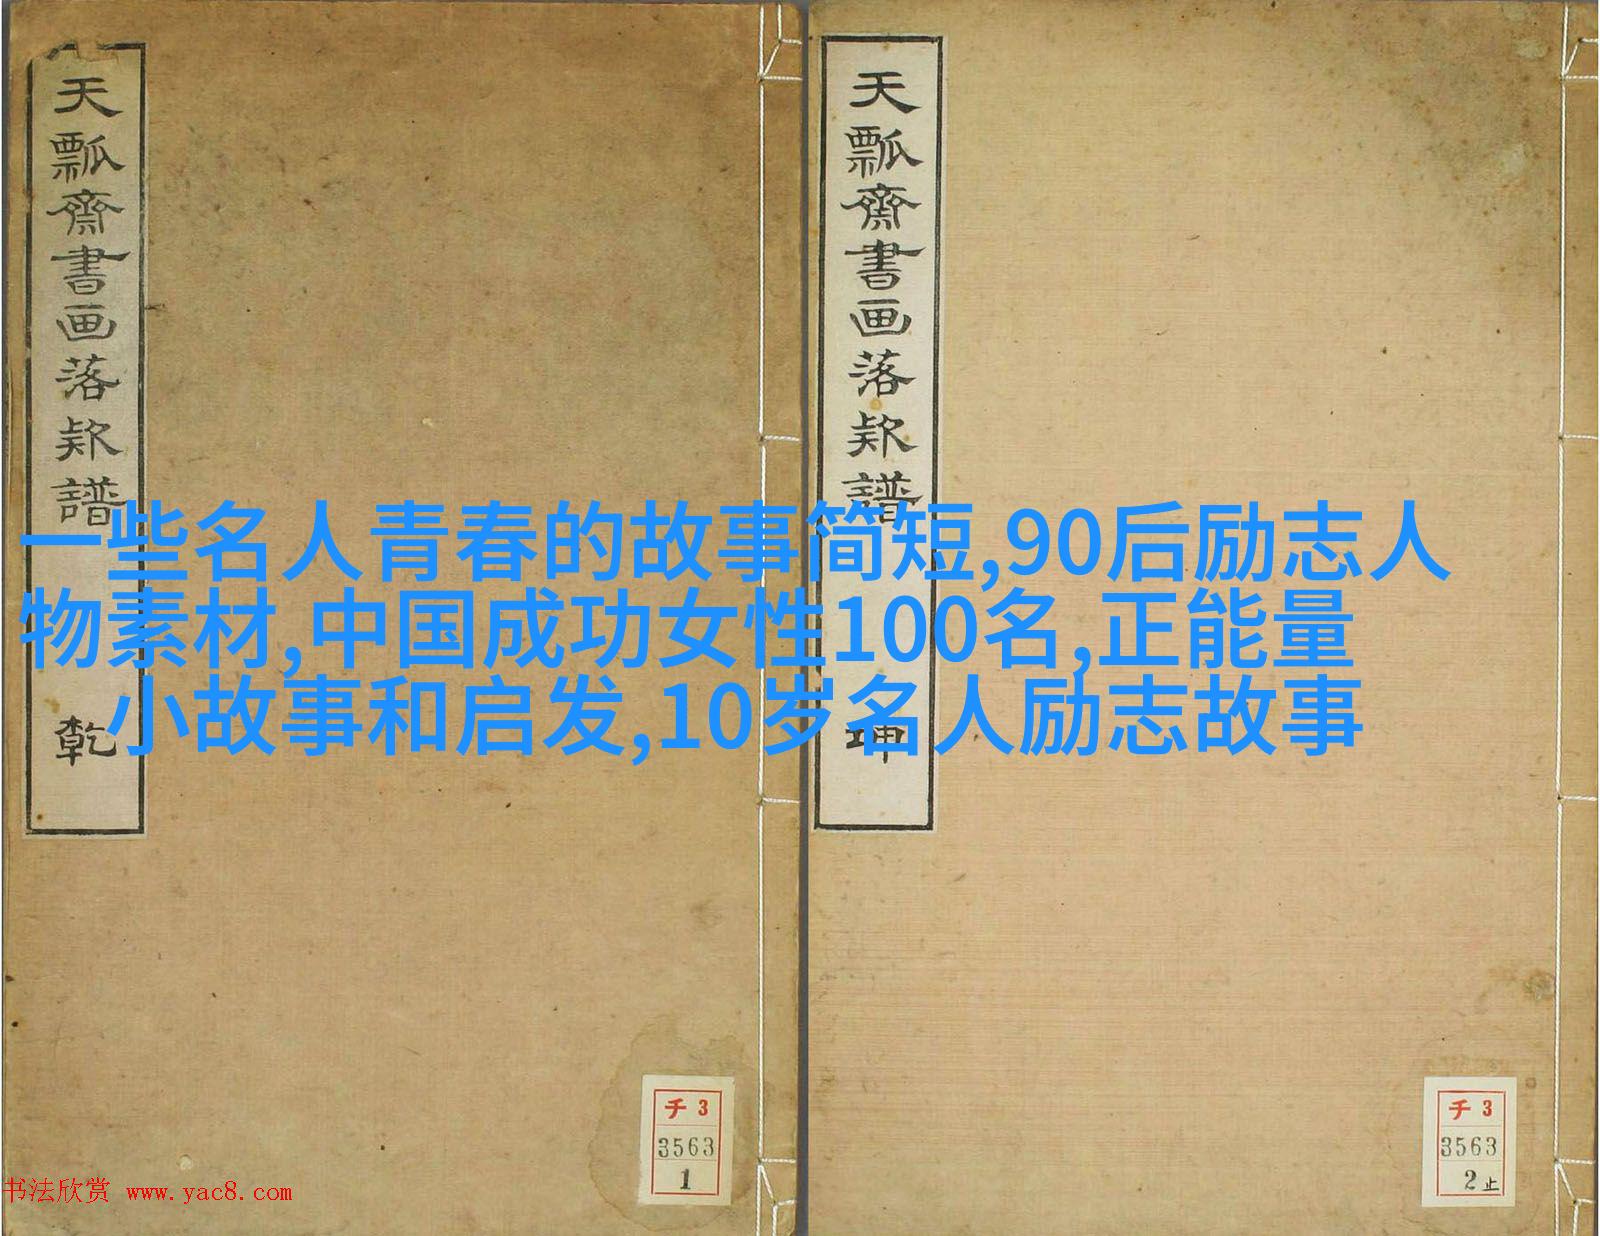 天瓢齋書画落欵譜
乾
天瓢齋書画落欵譜
坤
一些名人青春的故事简短,90后励志人
物素材,中国成功女性100名,正能量
小故事和启发,10岁名人励志故事
チ 3
3563
1
チ 3
3563
2止
书法欣赏 www.yac8.com